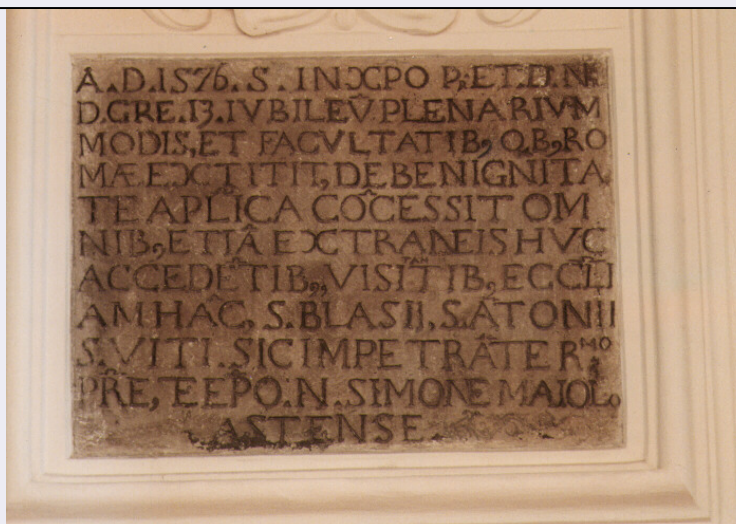 A.D.1576.S.INXPO P, ET.D.N
D.GRE.13.IVBILEṼ PLENARIVM
MODIS, ET FACVLTATIB, QB, RO
MÆ EXTITIT, DE BENIGNITA
TE APLICA CÕCESSIT OM
NIB, ETIÃ EXTRANEIS HVC
ACCEDẼTIB, VISITÃTIB, ECCLI
AM HÃC, S. BLASII, S. ÃTONII
S. VITI. SIC IMPETRÃTE Rᴹᴼ
PRE, E EPO. N. SIMONE MAIOL.
ASTENSE